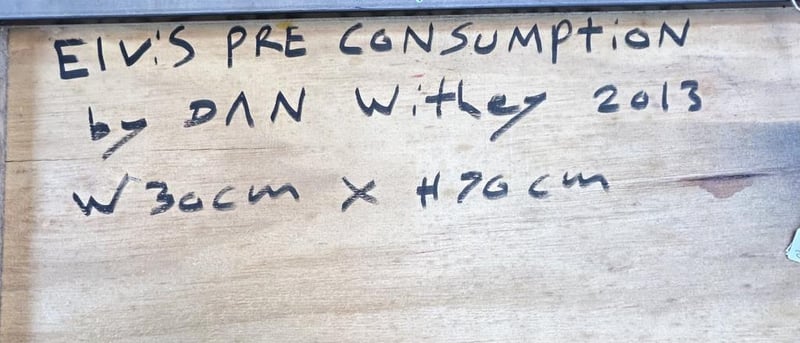 ElViS PRE CONSUMPtiON
by DAN Withey 2013
W 30cm X H70cm